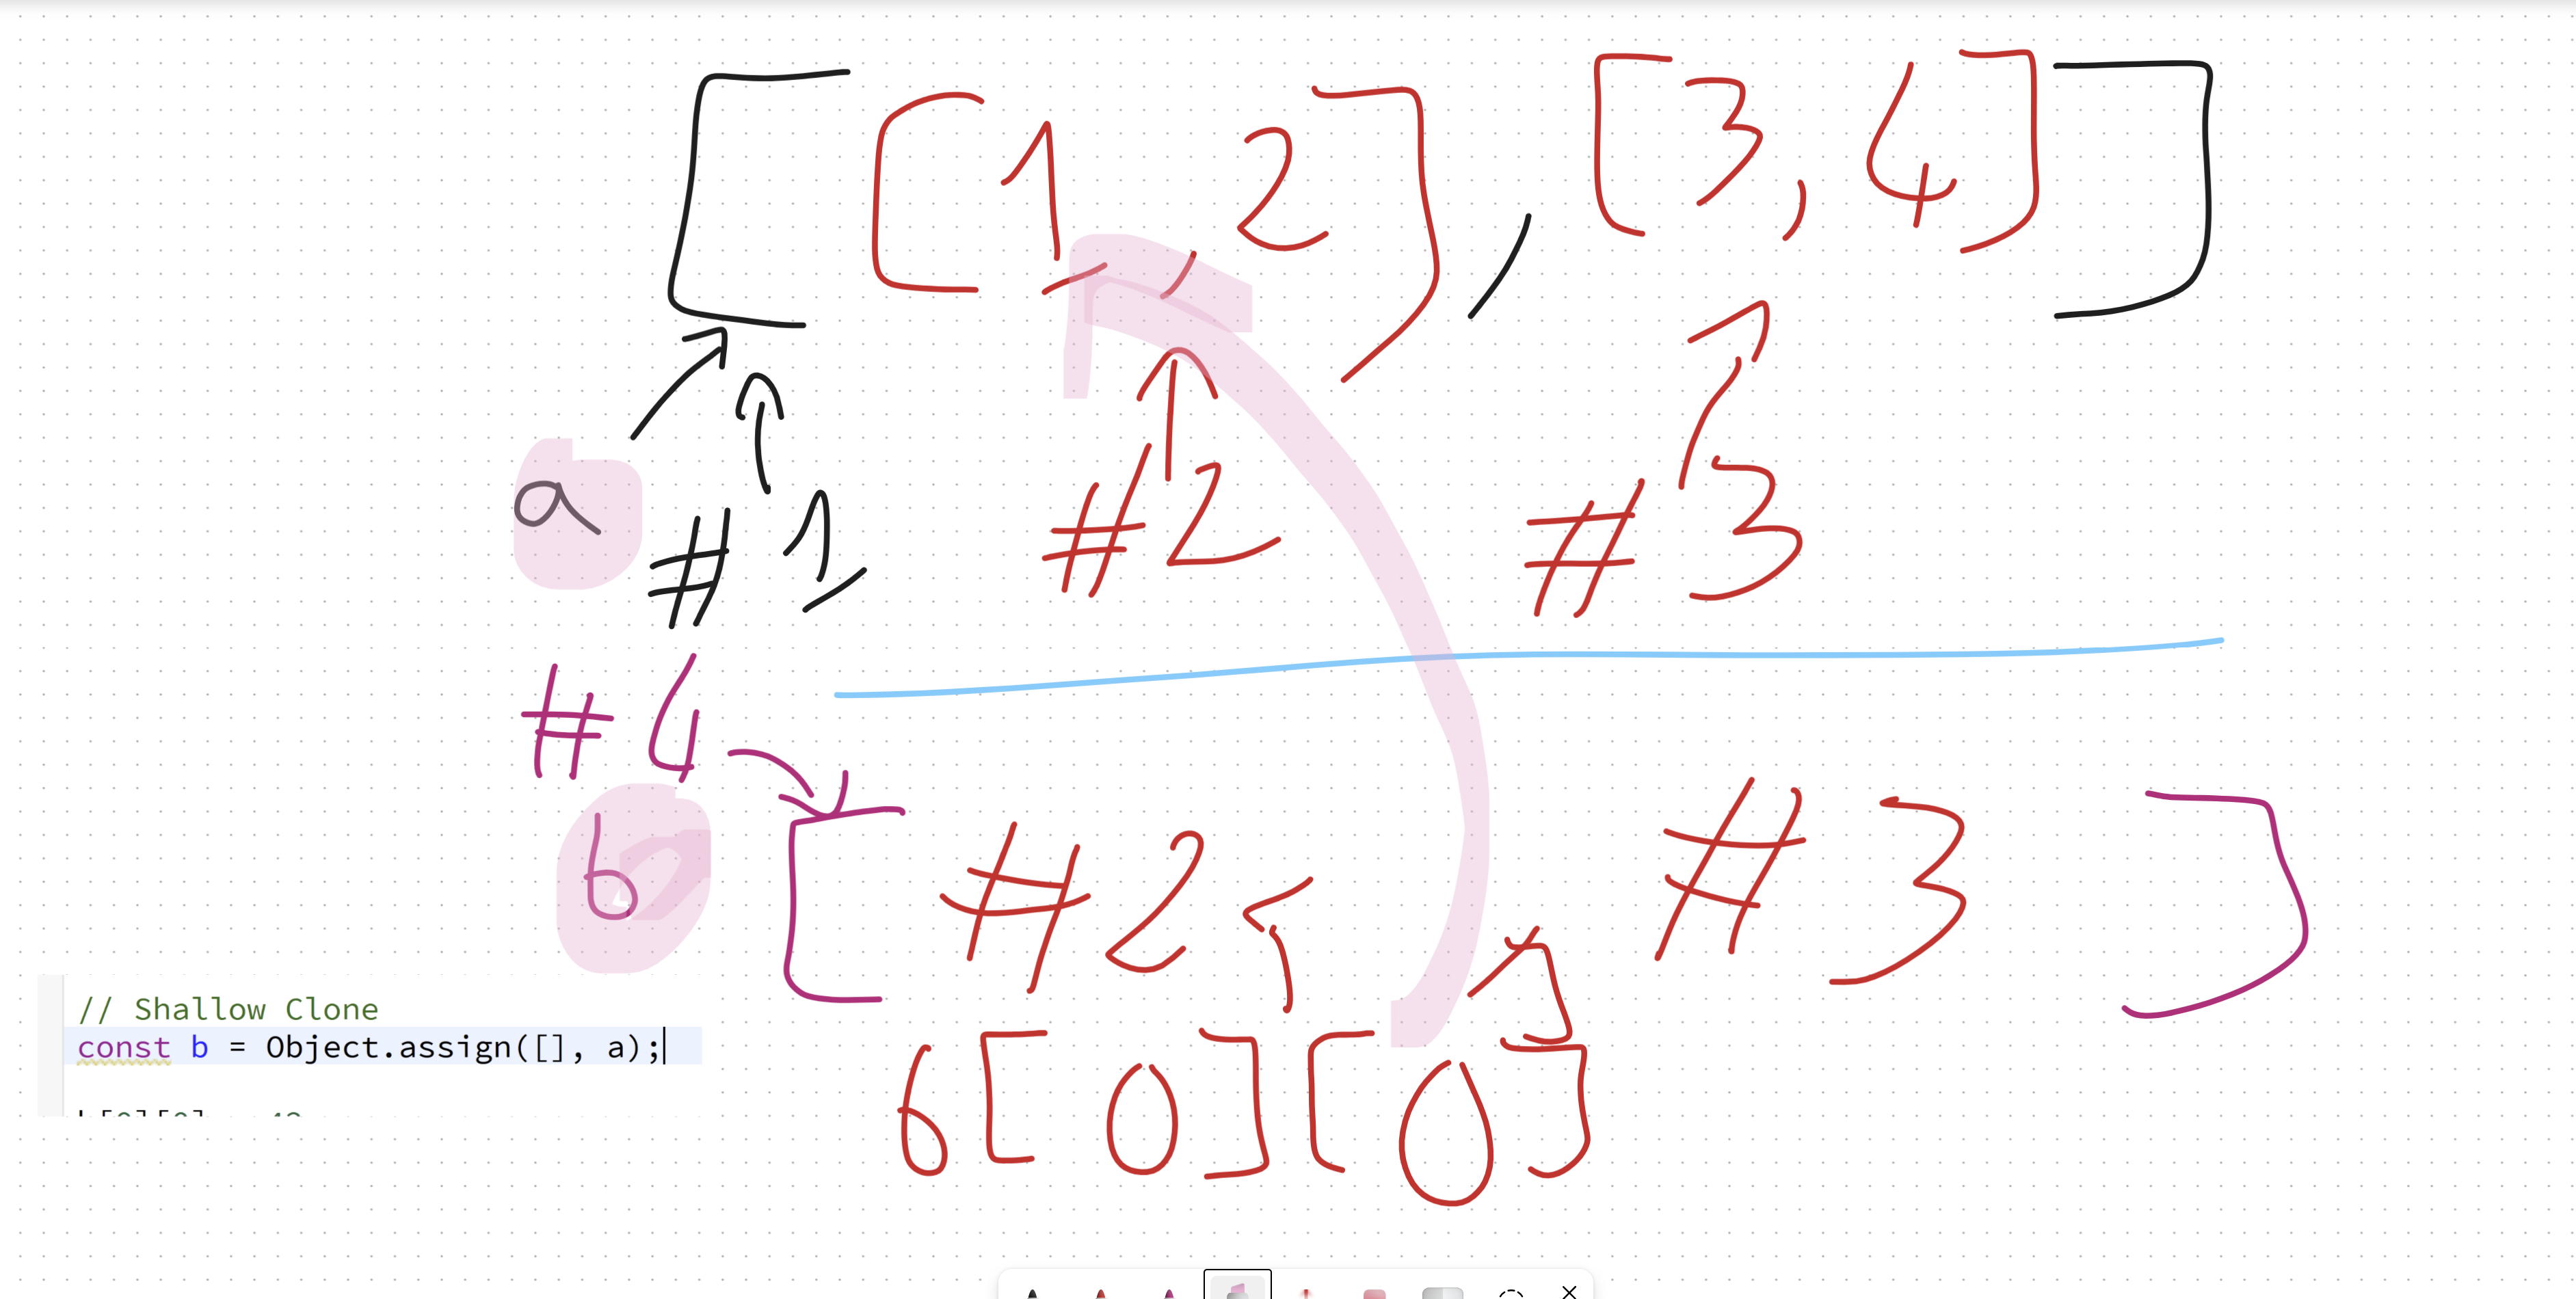 [[1, 2], [3, 4]]
a
#1 #2 #3
#4
b
[#2, #3]
// Shallow Clone
const b = Object.assign([], a);
b[0][0]